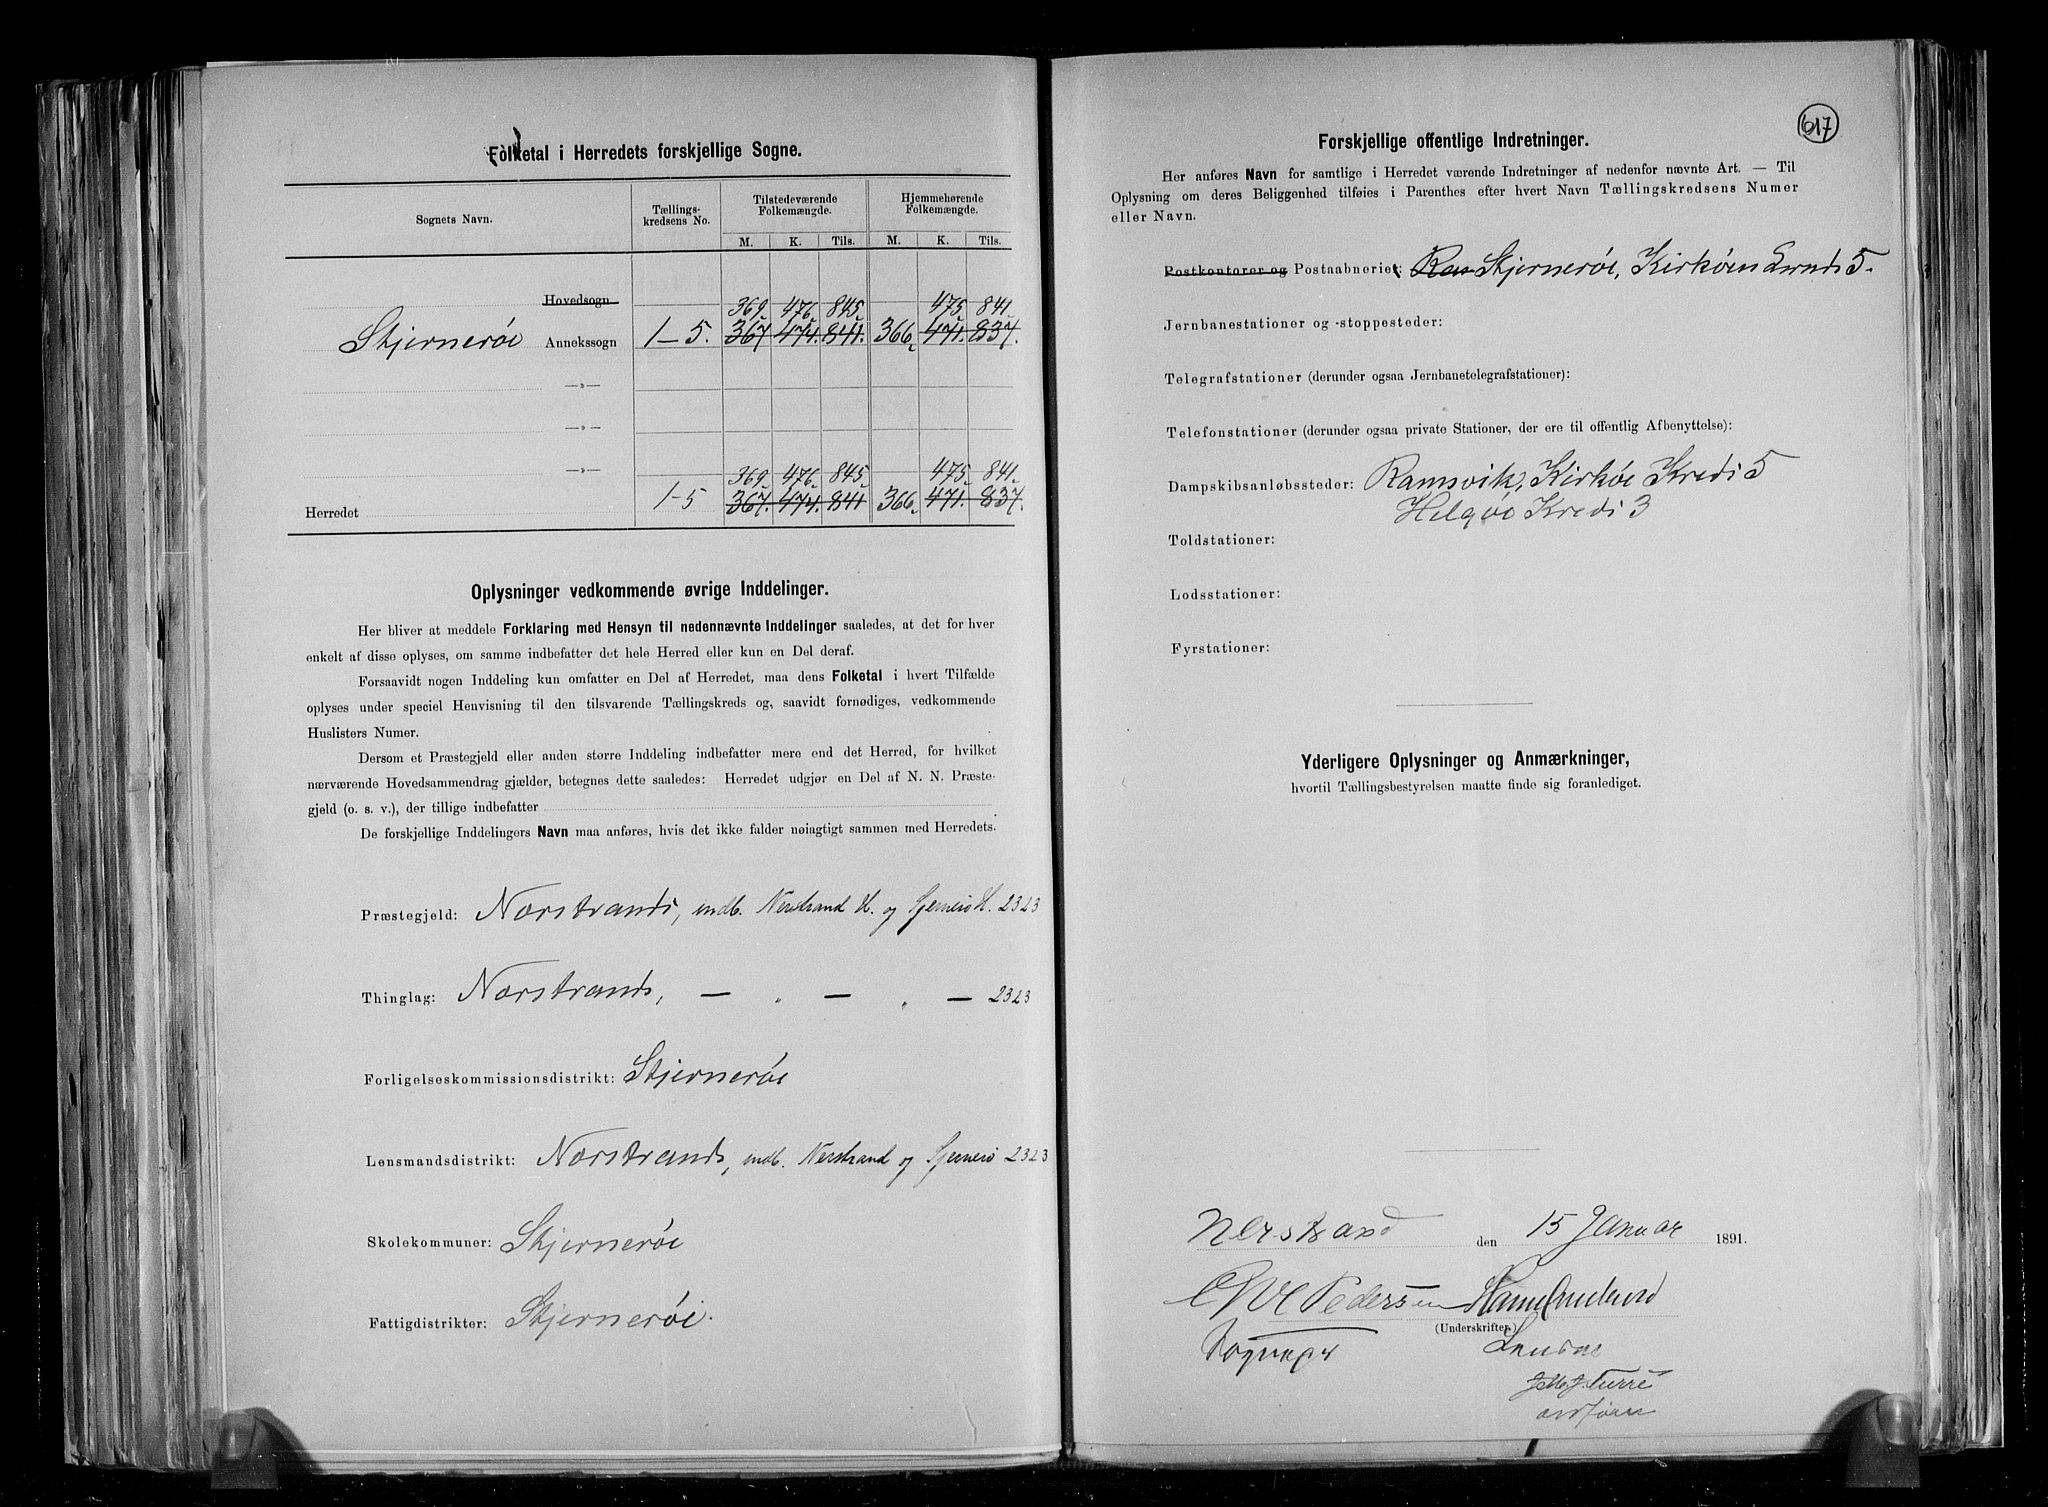 Folketal i Herredets forskjellige Sogne.
Sognets Navn.
Tællings-
kredsens No.
Tilstedeværende
Folkemængde.
Hjemmehørende
Folkemængde.
M. K. Tils. M. K. Tils.
Hovedsogn
369 476 845 475 841
Stjernerøe Annekssogn 1-5. 367 474. 841. 366 471. 837.
—»—
—»—
—»—
369 476 845 475 841
Herredet 1-5 367. 474. 841 366 471. 837.
Oplysninger vedkommende øvrige Inddelinger.
Her bliver at meddele Forklaring med Hensyn til nedennævnte Inddelinger saaledes, at det for hver
enkelt af disse oplyses, om samme indbefatter det hele Herred eller kun en Del deraf.
Forsaavidt nogen Inddeling kun omfatter en Del af Herredet, maa dens Folketal i hvert Tilfælde
oplyses under speciel Henvisning til den tilsvarende Tællingskreds og, saavidt fornødiges, vedkommende
Huslisters Numer.
Dersom et Præstegjeld eller anden større Inddeling indbefatter mere end det Herred, for hvilket
nærværende Hovedsammendrag gjælder, betegnes dette saaledes: Herredet udgjør en Del af N. N. Præste-
gjeld (o. s. v.), der tillige indbefatter
De forskjellige Inddelingers Navn maa anføres, hvis det ikke falder nøiagtigt sammen med Herredets.
Præstegjeld: Nærstrands, indb. Nerstrand H. og Sjernerø H. 2323
Thinglag: Nærstrands, — „ — „ — 2323
Forligelseskommissionsdistrikt: Stjernerøe
Lensmandsdistrikt: Nærstrands, indb. Nerstrand og Sjernerø 2323
Skolekommuner: Stjernerøe
Fattigdistrikter: Stjernerøe.
617
Forskjellige offentlige Indretninger.
Her anføres Navn for samtlige i Herredet værende Indretninger af nedenfor nævnte Art. — Til
Oplysning om deres Beliggenhed tilføies i Parenthes efter hvert Navn Tællingskredsens Numer
eller Navn.
Postkontorer og Postaabnerie: Ram Stjernerøe, Kirkøen 5.
Jernbanestationer og -stoppesteder:
Telegrafstationer (derunder ogsaa Jernbanetelegrafstationer):
Telefonstationer (derunder ogsaa private Stationer, der ere til offentlig Afbenyttelse):
Dampskibsanløbssteder: Ramsvik, Kirkøe Kreds 5
Helgøe Kreds 3
Toldstationer:
Lodsstationer:
Fyrstationer:
Yderligere Oplysninger og Anmærkninger,
hvortil Tællingsbestyrelsen maatte finde sig foranlediget.
Nerstrand den 15 Januar 1891.
Pedersen
(Underskrifter.)
Sogneprest